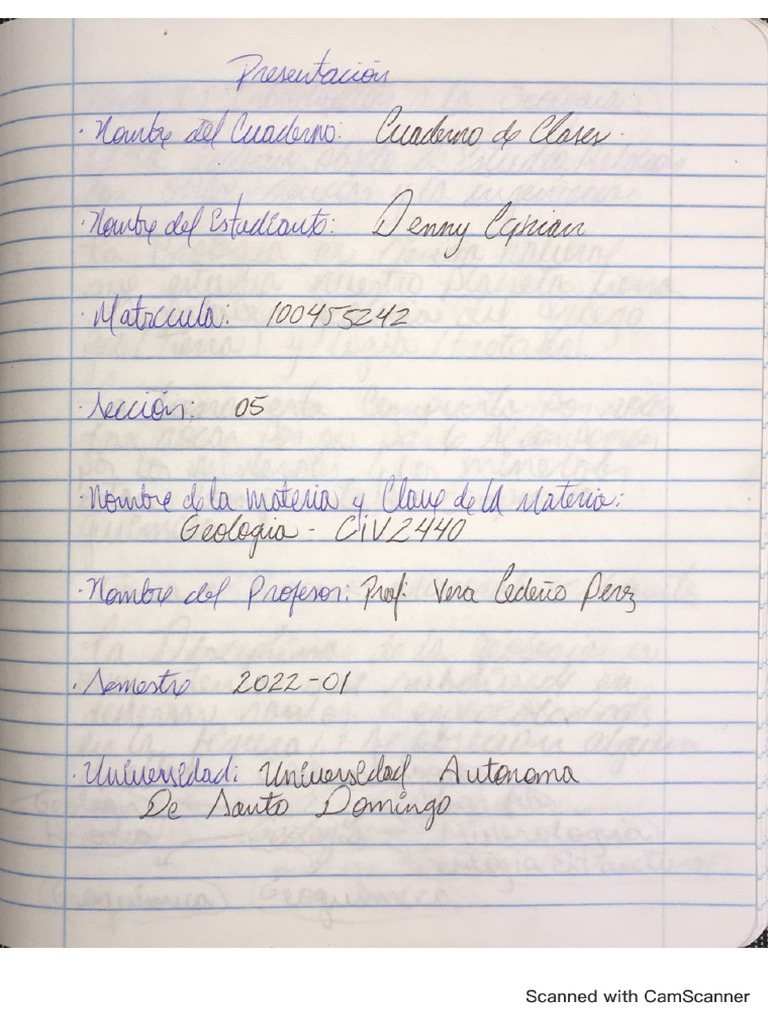 Presentación
· Nombre del Cuaderno: Cuaderno de Clases.
· Nombre del Estudiante: Denny Ciprian
· Matrícula: 100455242
· Sección: 05
· Nombre de la materia y Clave de la Materia:
Geologia - CiV2440
· Nombre del Profesor: Prof: Vera Cedeño Perez
· Semestre 2022-01
· Universidad: Universidad Autonoma
De Santo Domingo
Scanned with CamScanner